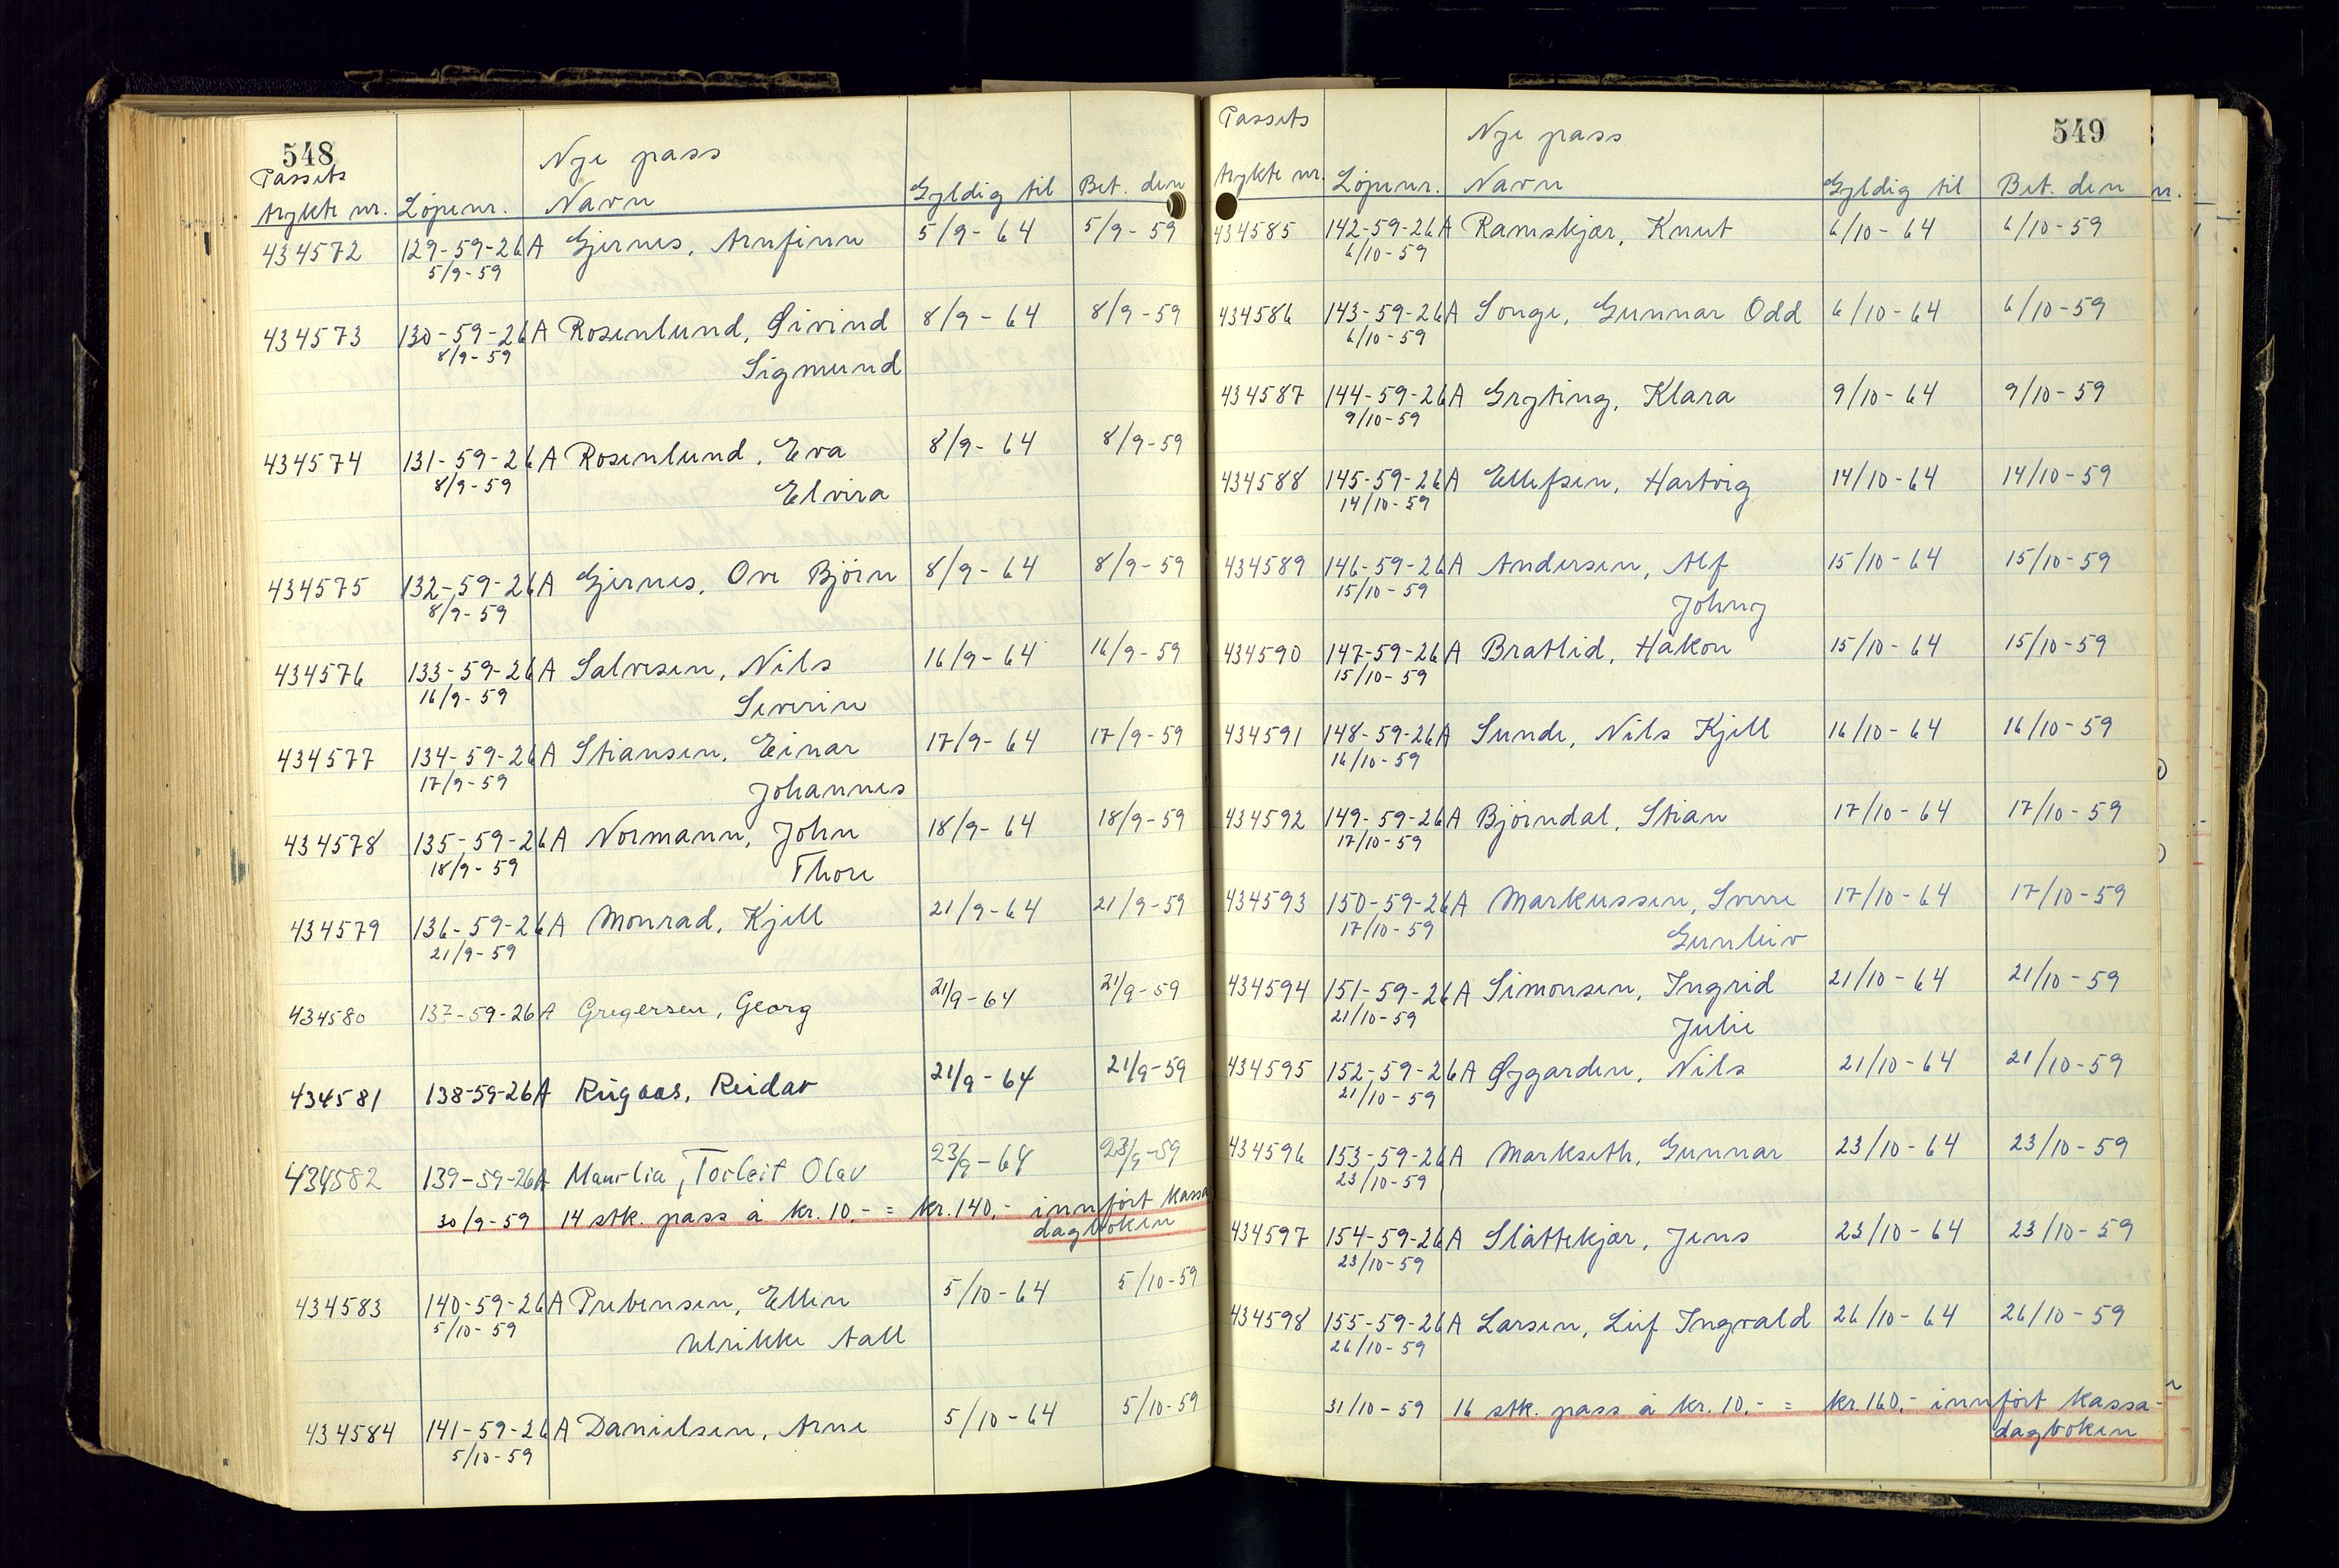 548
Nye pass
Passets
trykte nr. Løpenr. Navn Gyldig til Bet. den
434572 129-59-26A Gjernes, Arnfinn 5/9-64 5/9-59
5/9-59
434573 130-59-26A Rosenlund, Øivind 8/9-64 8/9-59
8/9-59 Sigmund
434574 131-59-26A Rosenlund, Eva 8/9-64 8/9-59
8/9-59 Elvira
434575 132-59-26A Gjernes, Ove Bjørn 8/9-64 8/9-59
8/9-59
434576 133-59-26A Salvesen, Nils 16/9-64 16/9-59
16/9-59 Severin
434577 134-59-26A Stiansen, Einar 17/9-64 17/9-59
17/9-59 Johannes
434578 135-59-26A Normann, John 18/9-64 18/9-59
18/9-59 Thore
434579 136-59-26A Monrad, Kjell 21/9-64 21/9-59
21/9-59
434580 137-59-26A Gregersen, Georg 21/9-64 21/9-59
434581 138-59-26A Reidar 21/9-64 21/9-59
434582 139-59-26A Torleif Olav 23/9-64 23/9-59
30/9-59 14 stk. pass à kr. 10.- = kr. 140.- innført kassa
dagboken
434583 140-59-26A Prebensen, Ellen 5/10-64 5/10-59
5/10-59 Ulrikke Aall
434584 141-59-26A Danielsen, Arne 5/10-64 5/10-59
5/10-59
549
Passets
Nye pass
trykte nr. Løpenr. Navn Gyldig til Bet. den
434585 142-59-26A Ramskjær, Knut 6/10-64 6/10-59
6/10-59
434586 143-59-26A Songe, Gunnar Odd 6/10-64 6/10-59
6/10-59
434587 144-59-26A Gryting, Klara 9/10-64 9/10-59
9/10-59
434588 145-59-26A Ellefsen, Hartvig 14/10-64 14/10-59
14/10-59
434589 146-59-26A Andersen, Alf 15/10-64 15/10-59
15/10-59 Johny
434590 147-59-26A Bratlid, Håkon 15/10-64 15/10-59
15/10-59
434591 148-59-26A Sunde, Nils Kjell 16/10-64 16/10-59
16/10-59
434592 149-59-26A Bjørndal, Stian 17/10-64 17/10-59
17/10-59
434593 150-59-26A Markussen, Sverre 17/10-64 17/10-59
17/10-59 Gunleiv
434594 151-59-26A Simonsen, Ingrid 21/10-64 21/10-59
21/10-59 Julie
434595 152-59-26A Øygarden, Nils 21/10-64 21/10-59
21/10-59
434596 153-59-26A Markseth, Gunnar 23/10-64 23/10-59
23/10-59
434597 154-59-26A Slåttekjær, Jens 23/10-64 23/10-59
23/10-59
434598 155-59-26A Larsen, Leif Ingvald 26/10-64 26/10-59
26/10-59
31/10-59 16 stk. pass à kr. 10.- = kr. 160.- innført kassa-
dagboken